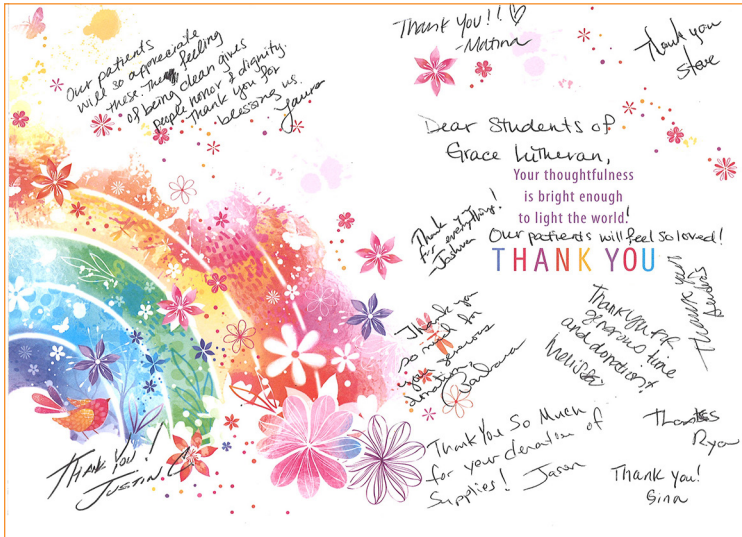 Our patients
will so appreciate
these. The feeling
of being clean gives
people honor & dignity.
Thank you for
blessing us.
Laura
Thank You!! ♡
- Matina
Thank you
Steve
Dear Students of
Grace Lutheran,
Your thoughtfulness
is bright enough
to light the world!
Our patients will feel so loved!
THANK YOU
Thank you
for everything!
- Joshua
Thank you
so much for
your generous
donation,
Barbara
Thank you for
generous time
and donations!
Melissa
Thank you
Thanks
Ryan
Thank you!
Gina
Thank You So Much
for your donation of
Supplies! Jason
THANK YOU!
JUSTIN C.